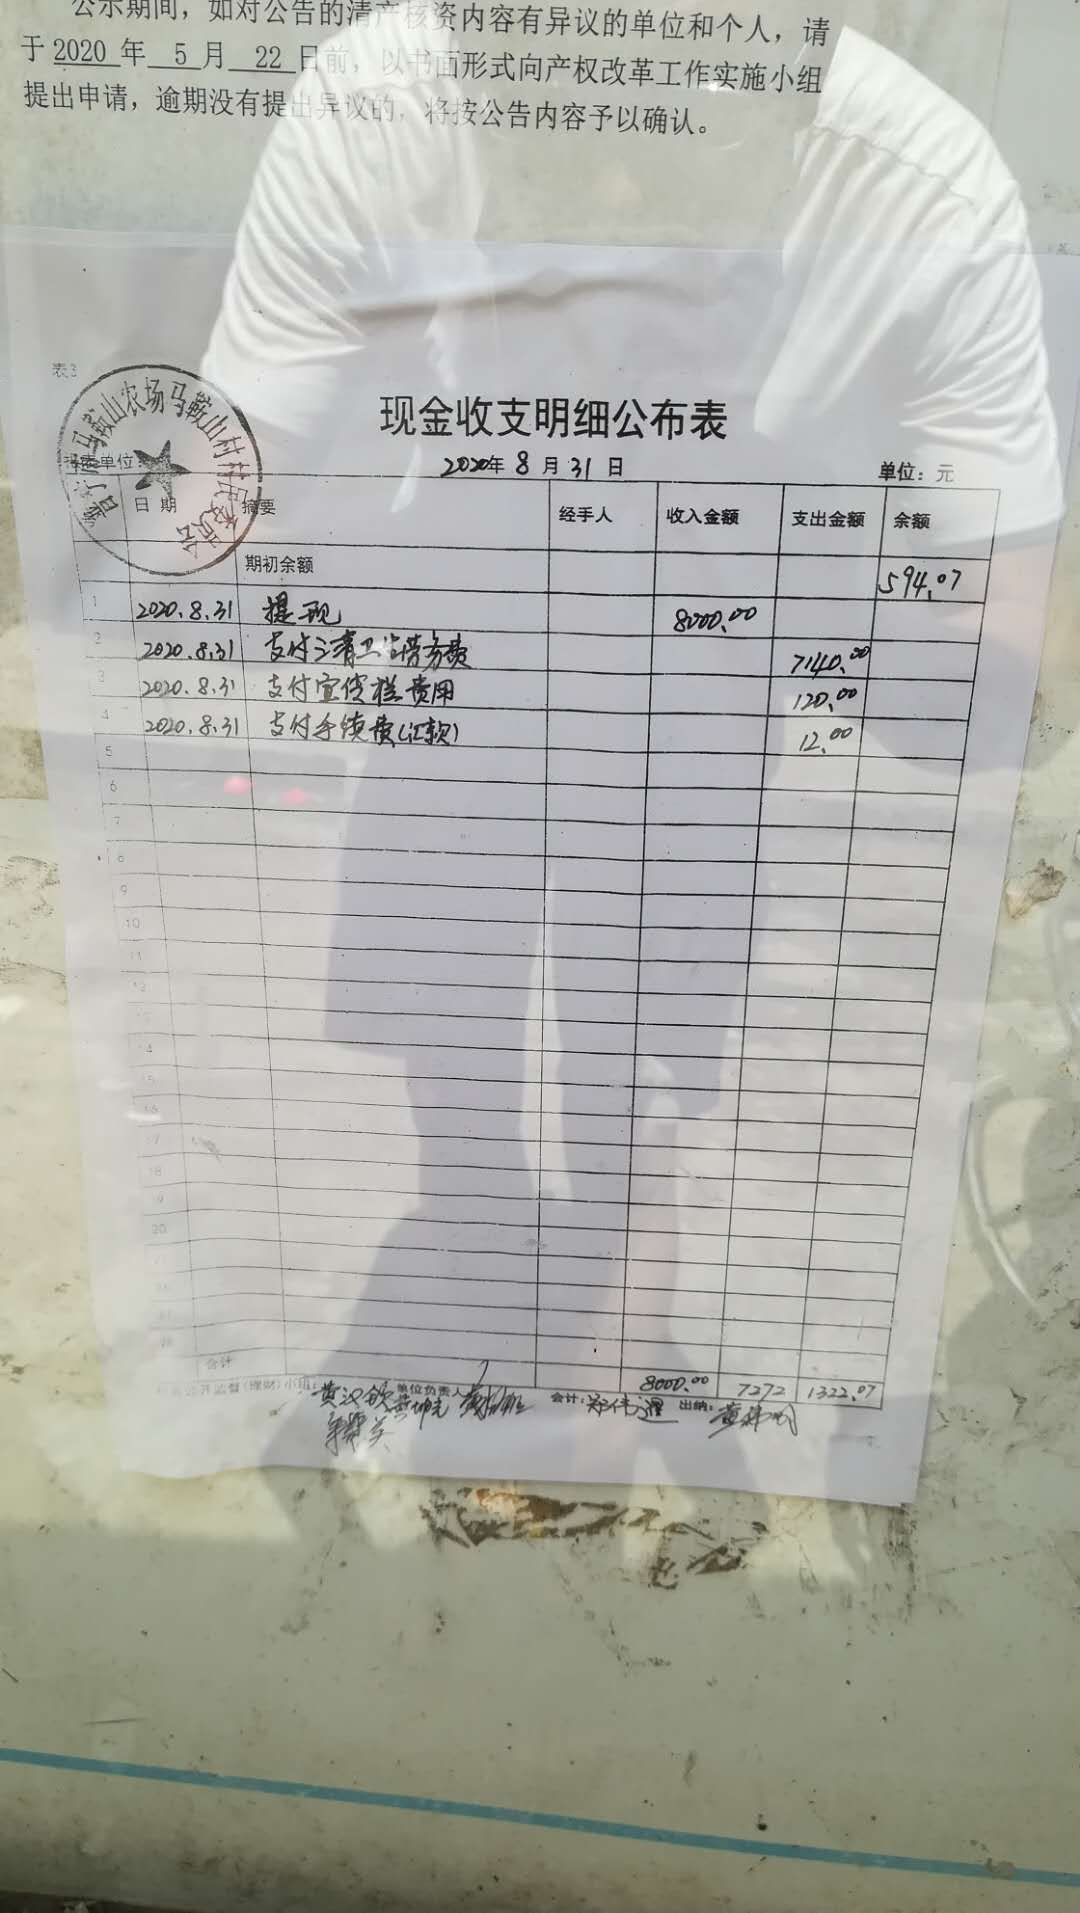 公示期间，如对公告的清产核资内容有异议的单位和个人，请
于 2020 年 5 月 22 日前，以书面形式向产权改革工作实施小组
提出申请，逾期没有提出异议的，将按公告内容予以确认。
表3
马鞍山农场马鞍山村村民委员会
现金收支明细公布表
单位：
2020年 8 月 31 日
单位：元
日期 摘要 经手人 收入金额 支出金额 余额
期初余额 594.07
1 2020.8.31 提现 8000.00
2 2020.8.31 支付三清卫生劳务费 7140.00
3 2020.8.31 支付宣传栏费用 120.00
4 2020.8.31 支付手续费(汇款) 12.00
5
6
7
8
9
10
11
12
14
15
16
17
18
19
20
合计 8000.00 7272 1322.07
公开监督(理财)小组： 黄汉钦 单位负责人 会计： 出纳：